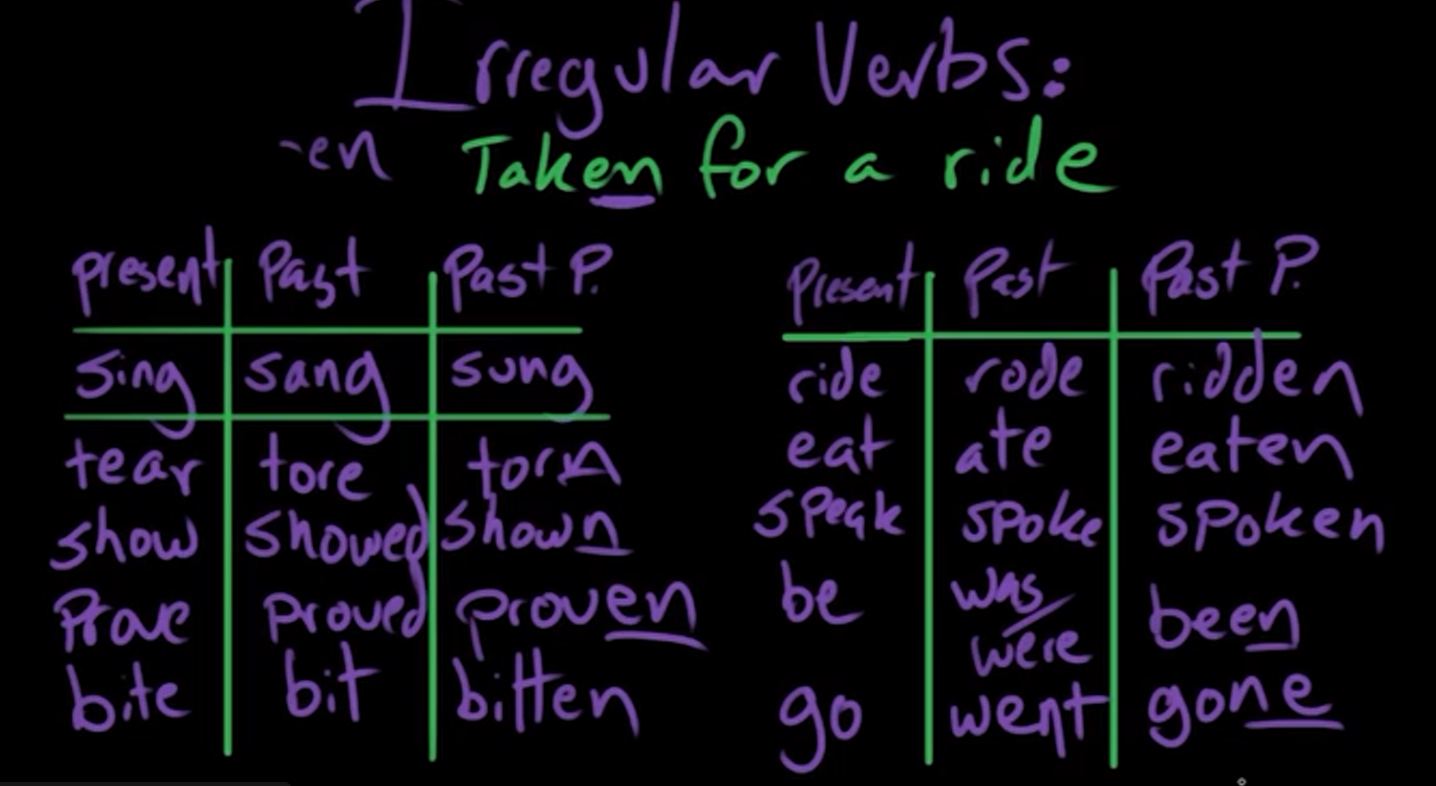 Irregular Verbs:
-en Taken for a ride
present Past Past P.
sing sang sung
tear tore torn
show showed shown
Prove proved proven
bite bit bitten
Present Past Past P.
ride rode ridden
eat ate eaten
speak spoke spoken
be was/ been
were
go went gone